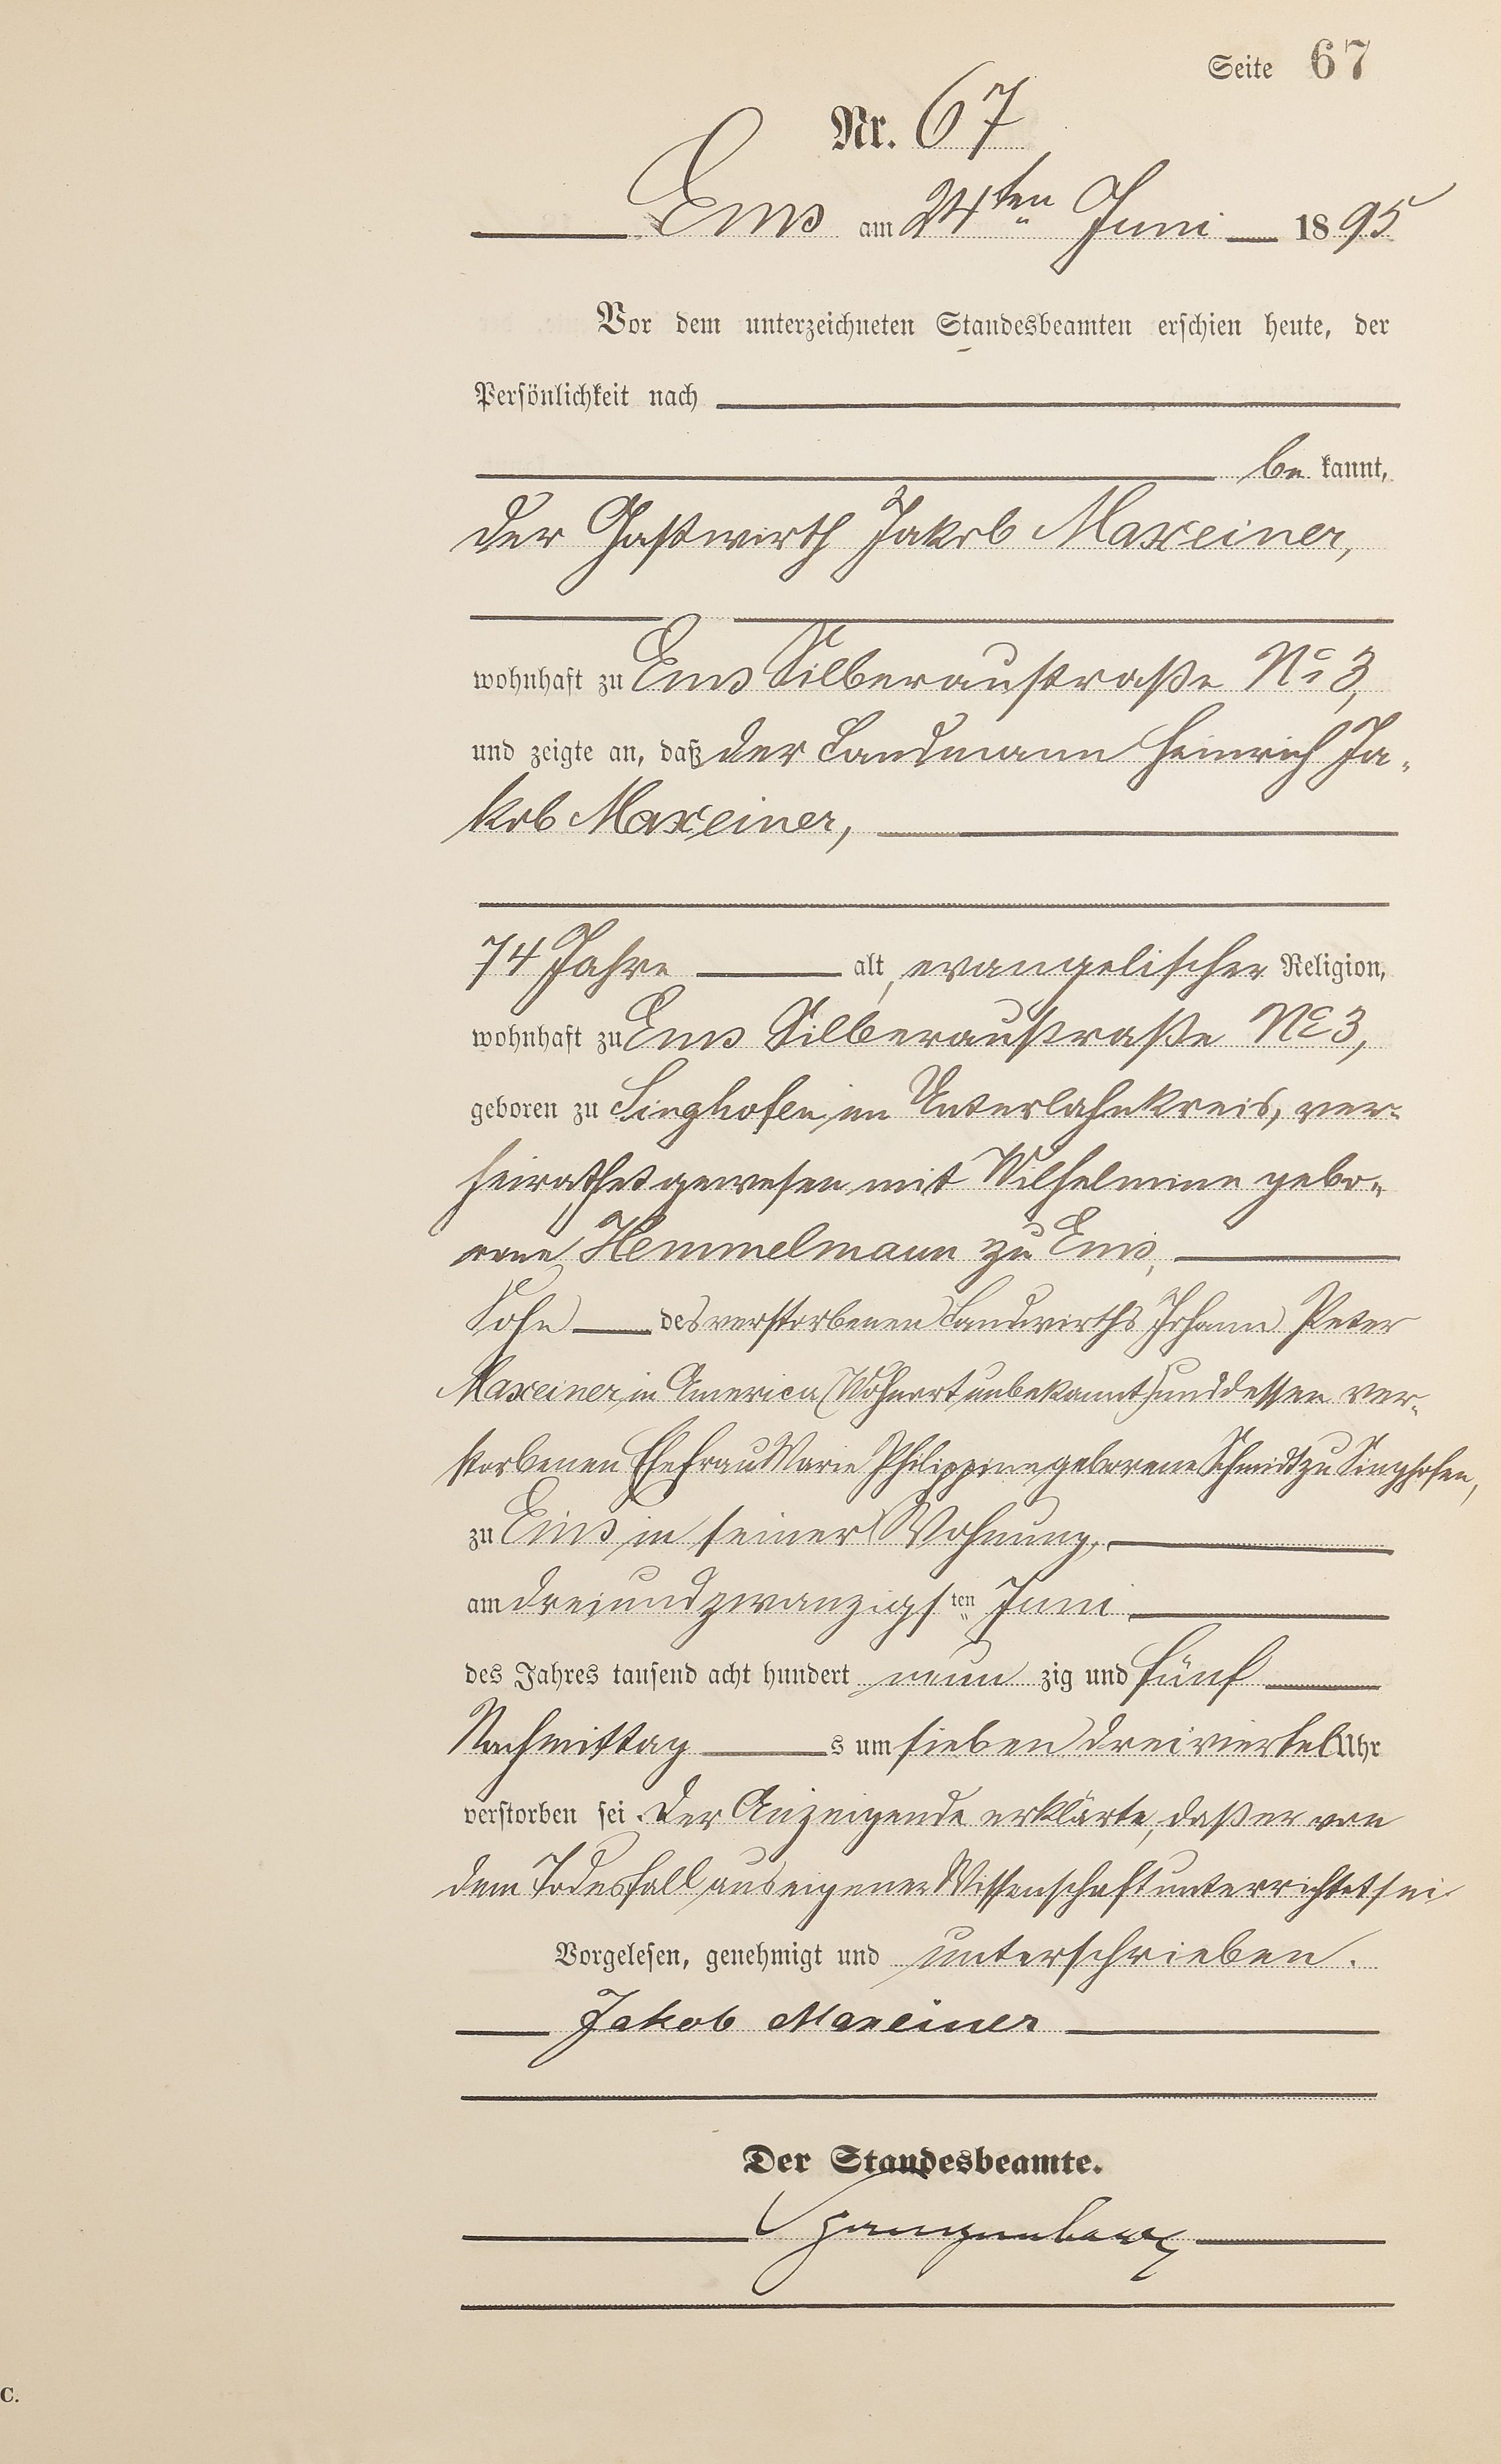 Seite 67
Nr. 67
Ems am 24ten Juni 1895
Vor dem unterzeichneten Standesbeamten erschien heute, der
Persönlichkeit nach
be kannt,
der Gastwirth Jakob Maxeiner,
wohnhaft zu Ems Silberaustraße No 3,
und zeigte an, daß der Landmann Heinrich Ja-
kob Maxeiner,
74 Jahre alt, evangelischer Religion,
wohnhaft zu Ems Silberaustraße No 3,
geboren zu Singhofen im Unterlahnkreis, ver-
heirathet gewesen mit Wilhelmine gebo-
rene Hemmelmann zu Ems,
Sohn des verstorbenen Landwirths Johann Peter
Maxeiner in America (Wohnort unbekannt) und dessen ver-
storbenen Ehefrau Marie Philippine geborene Schmidt zu Singhofen,
zu Ems in seiner Wohnung,
am dreiundzwanzigsten Juni
des Jahres tausend acht hundert neun zig und fünf
Nachmittag s um sieben dreiviertel Uhr
verstorben sei. Der Anzeigende erklärte, daß er von
dem Todesfall aus eigener Wissenschaft unterrichtet sei
Vorgelesen, genehmigt und unterschrieben.
Jakob Maxeiner
Der Standesbeamte.
C.